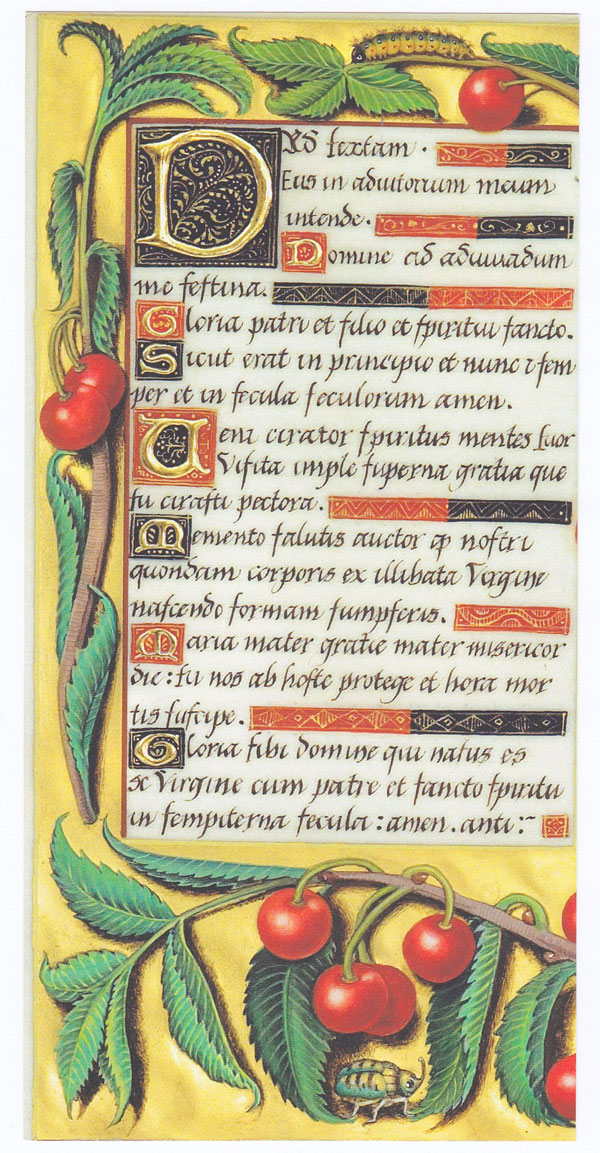 Ad ſextam .
Deus in adiutorium meum
intende .
Domine ad adiuuadum
me feſtina.
Gloria patri et filio et ſpiritui ſancto.
Sicut erat in principio et nunc ⁊ ſem
per et in ſecula ſeculorum amen .
Veni creator ſpiritus mentes tuor
Viſita imple ſuperna gratia que
tu creaſti pectora .
Memento ſalutis auctor ꝙ noſtri
quondam corporis ex illibata Virgine
naſcendo formam ſumpſeris .
Maria mater gratie mater misericor
die : tu nos ab hoſte protege et hora mor
tis ſuſcipe .
Gloria tibi domine qui natus es
de Virgine cum patre et ſancto ſpiritu
in ſempiterna ſecula : amen . anti :~